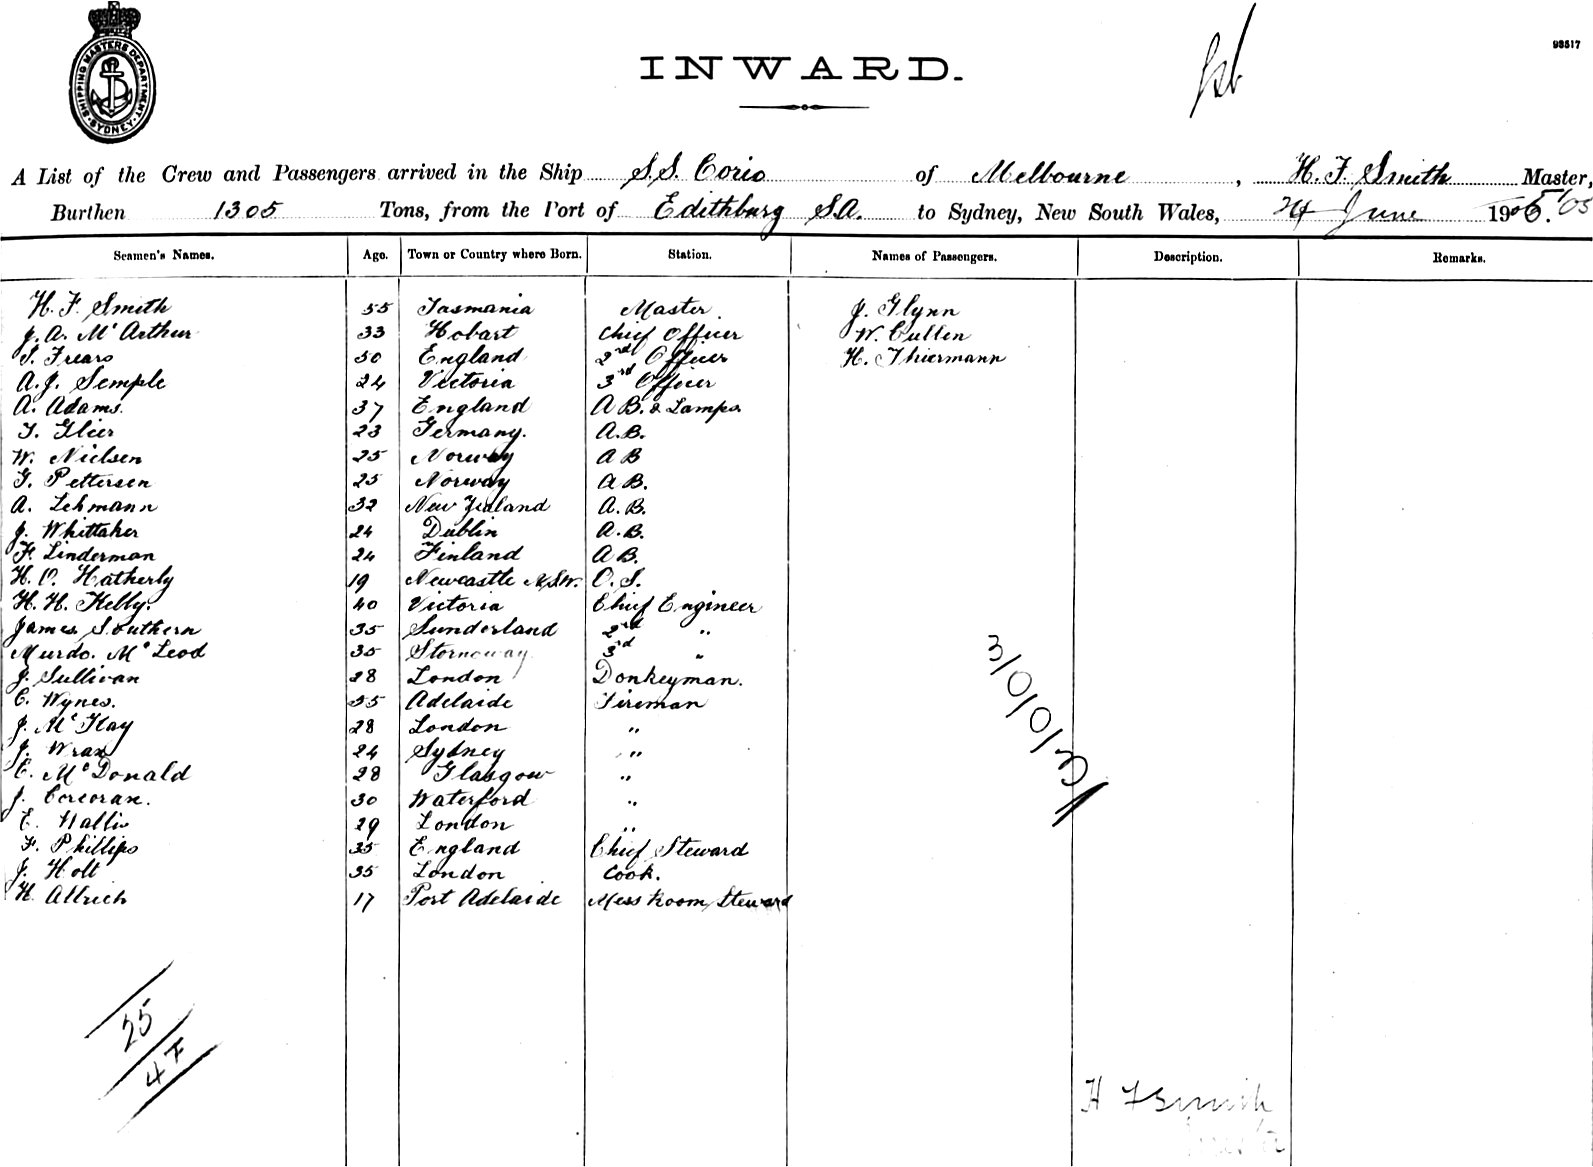 SHIPPING MASTERS DEPARTMENT. SYDNEY.
93517
INWARD.
A List of the Crew and Passengers arrived in the Ship S.S. Corio of Melbourne, H. F. Smith Master,
Burthen 1305 Tons, from the Port of Edithburg S.A. to Sydney, New South Wales, 24 June 1905. '05
Seamen's Names. Age. Town or Country where Born. Station. Names of Passengers. Description. Remarks.
H. F. Smith 55 Tasmania Master. J. Glynn
J. A. McArthur 33 Hobart Chief Officer W. Cullen
S. Frears 30 England 2nd Officer H. Thiermann
A. J. Semple 24 Victoria 3rd Officer
A. Adams. 37 England A B. & Lamps
T. Glier 23 Germany. A.B.
W. Nielsen 25 Norway A B
G. Pettersen 25 Norway A B.
A. Lehmann 32 New Zealand A. B.
J. Whittaker 24 Dublin A. B.
F. Linderman 24 Finland A B.
H. O. Hatherly 19 Newcastle N.S.W. O. S.
H. H. Kelly. 40 Victoria Chief Engineer
James Southern 35 Sunderland 2nd "
Murdo. McLeod 35 Stornoway 3rd "
J. Sullivan 28 London Donkeyman.
C. Wynes. 55 Adelaide Fireman
J. McKay 28 London "
J. Wrax 24 Sydney "
C. McDonald 28 Glasgow "
J. Corcoran. 30 Waterford "
E. Wallis 29 London "
F. Phillips 35 England Chief Steward
J. Holt 35 London Cook.
H. Allrich 17 Port Adelaide Mess Room Steward
25
47
H F Smith